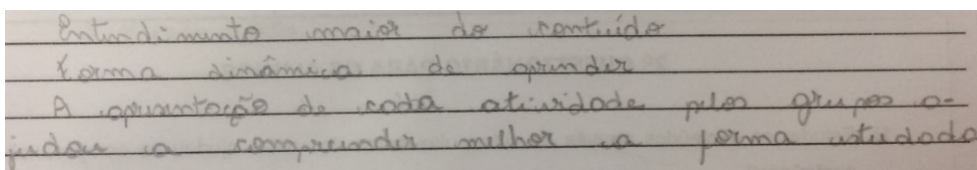 Entendimento maior do conteúdo
forma dinâmica de aprender
A apresentação de cada atividade pelos grupos a-
judou a compreender melhor a forma estudada